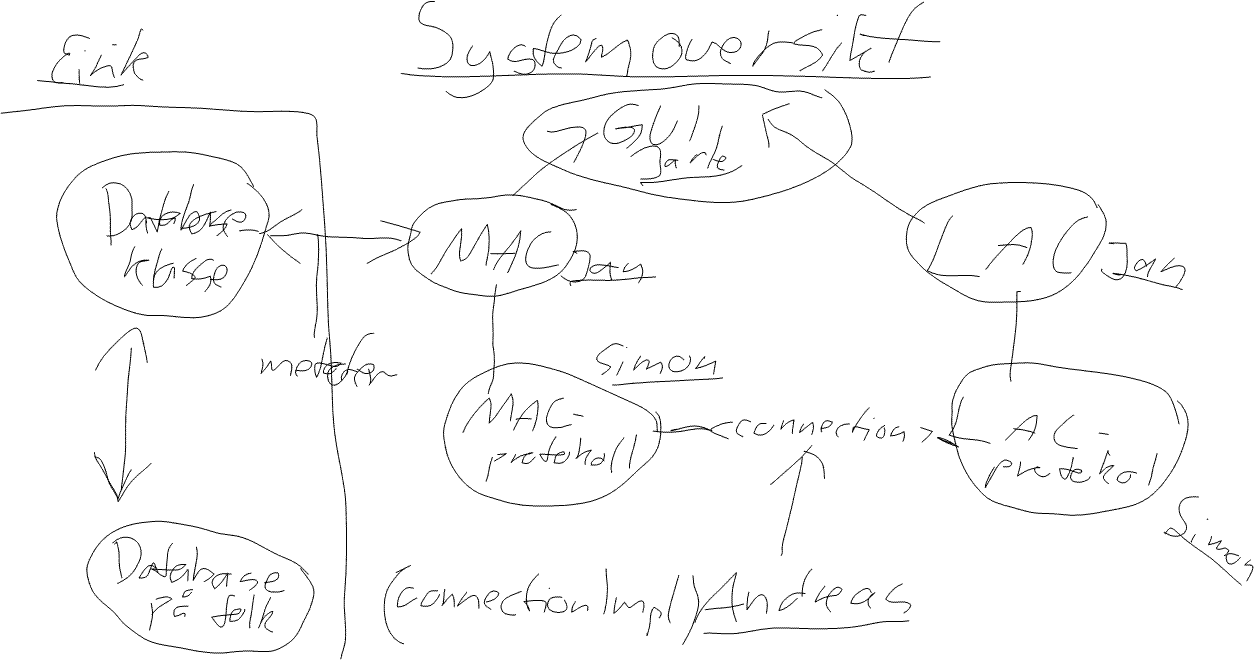 Eirik
Systemoversikt
GUI
Jarle
Database-
klasse
MAC
Jan
LAC
Jan
metoder
Simon
MAC-
protokoll
<connection>
LAC-
protokol
Simon
Database
på folk
(connectionImpl) Andreas